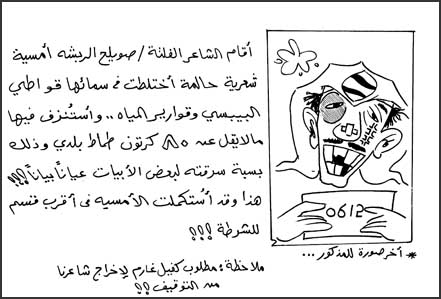 أقام الشاعر الفلتة / صويلح الريشه أمسية
شعرية حالمة أختلطت في سمائها قواطي
البيبسي وقوارير المياه .. وأستُنزف فيها
مالايقل عن ٨٥ كرتون طماط بلدي وذلك
بسبة سرقته لبعض الأبيات عياناً بياناً !!!
هذا وقد أُستكملت الأمسيه في أقرب قسم
للشرطة !!!
ملاحظة : مطلوب كفيل غارم لإخراج شاعرنا
من التوقيف ؟؟!
0612
* أخر صورة للمذكور ...